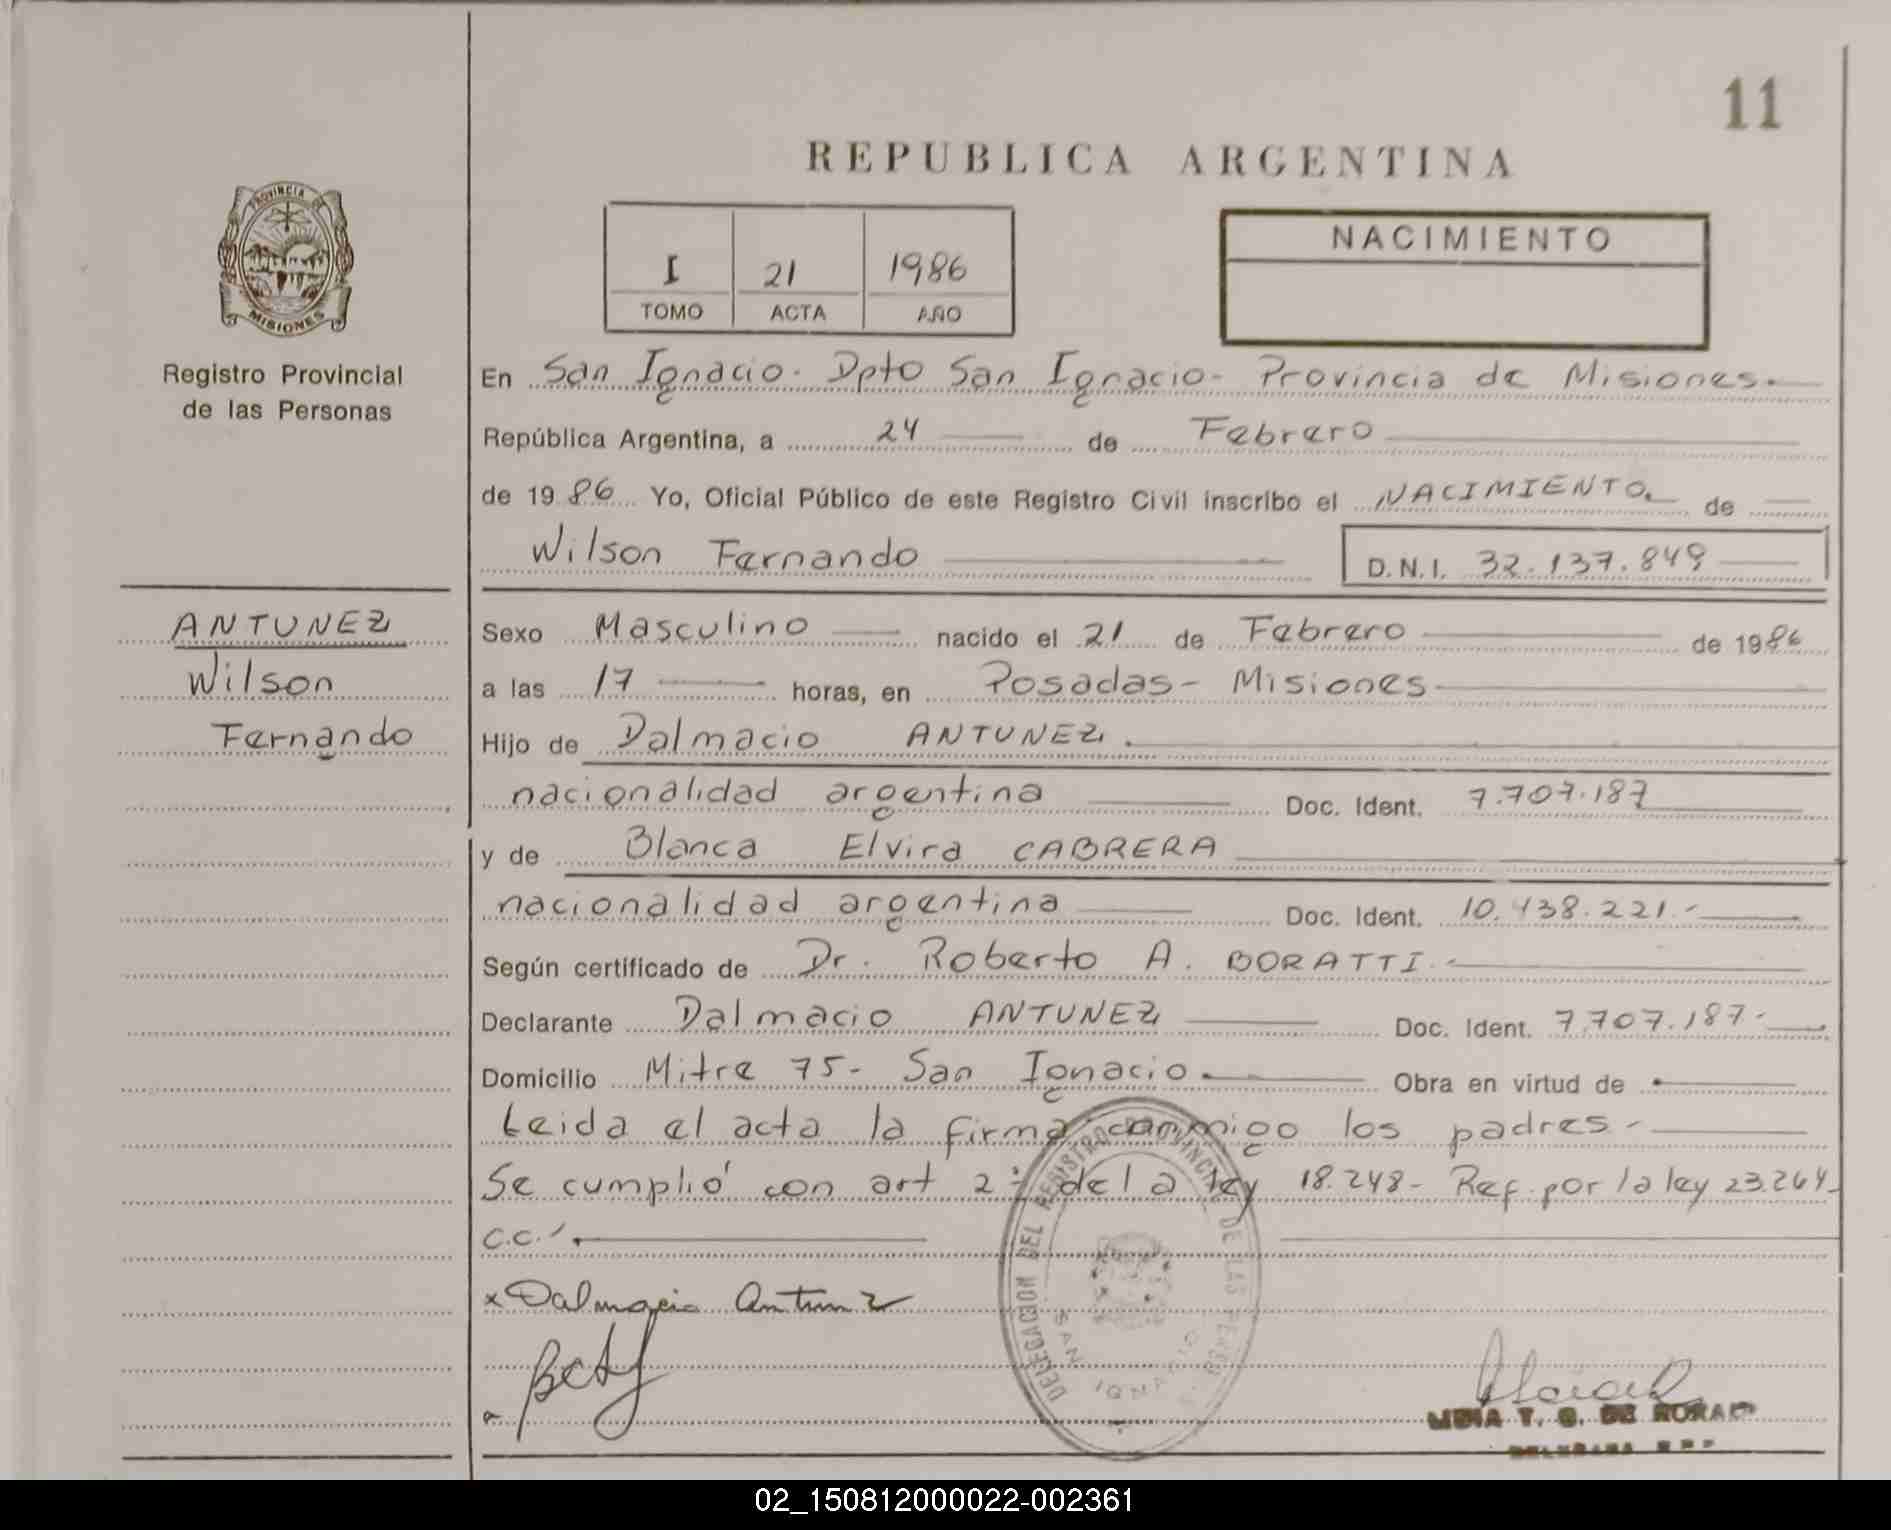 11
REPUBLICA ARGENTINA
PROVINCIA DE
MISIONES
Registro Provincial
de las Personas
I 21 1986
TOMO ACTA AÑO
NACIMIENTO
En San Ignacio. Dpto San Ignacio- Provincia de Misiones.
República Argentina, a 24 de Febrero
de 1986 Yo, Oficial Público de este Registro Civil inscribo el NACIMIENTO de
Wilson Fernando D.N.I. 32.137.849
ANTUNEZ
Wilson
Fernando
Sexo Masculino nacido el 21 de Febrero de 1986
a las 17 horas, en Posadas- Misiones
Hijo de Dalmacio ANTUNEZ.
nacionalidad argentina Doc. Ident. 7.707.187
y de Blanca Elvira CABRERA
nacionalidad argentina Doc. Ident. 10.438.221.-
Según certificado de Dr. Roberto A. BORATTI.-
Declarante Dalmacio ANTUNEZ Doc. Ident. 7.707.187-
Domicilio Mitre 75- San Ignacio. Obra en virtud de
Leida el acta la firma conmigo los padres-
Se cumplió con art 2º de la ley 18.248- Ref. por la ley 23.264-
c.c.
x Dalmacio Antunez
DELEGACION DEL REGISTRO PROVINCIAL DE LAS PERSONAS
SAN IGNACIO
LIDIA T. G. DE MORA
02_150812000022-002361